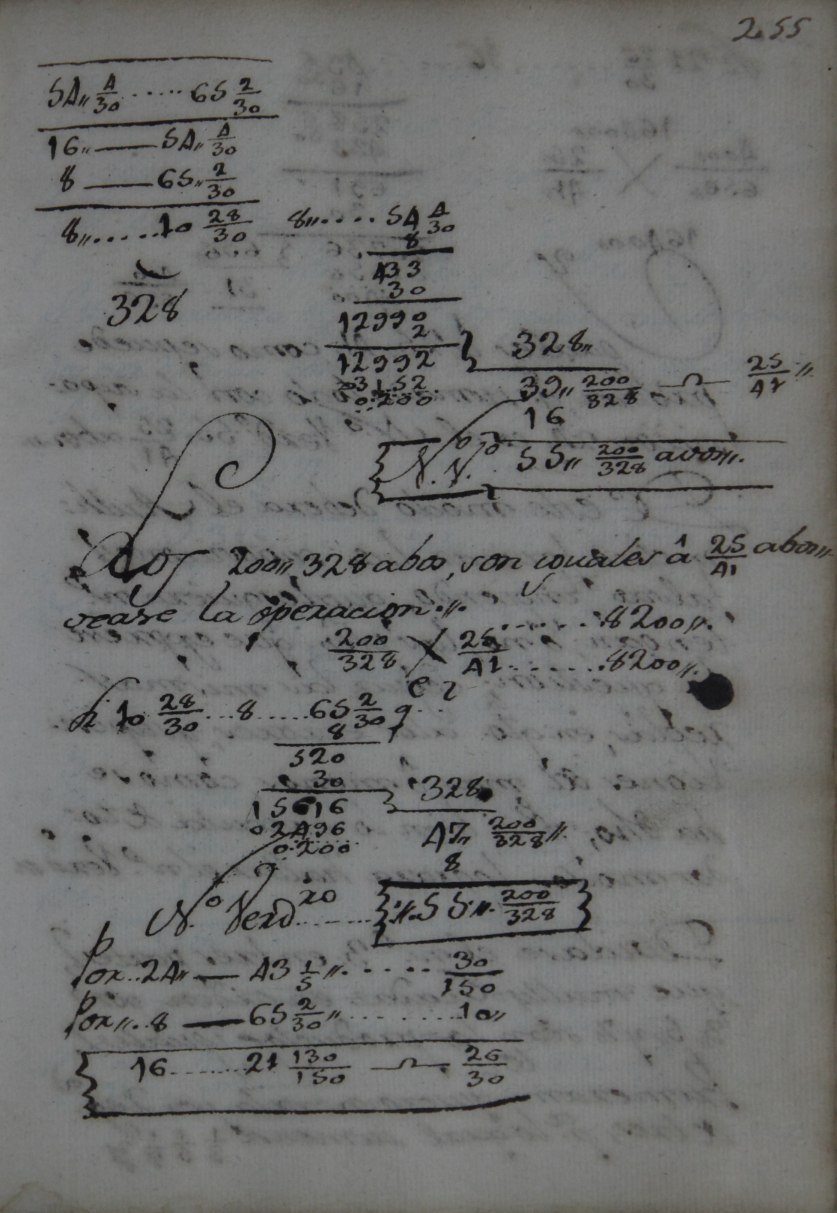 255
54,, 4/30 ..... 65 2/30
16,, — 54,, 4/30
8 — 65,, 2/30
8,,.....10 28/30
328
8,,.... 54 4/30
8
433
30
12990
2
12992
03152
0.200
328,,
39,, 200/328 — 25/41,,
16
N.º V.º 55,, 200/328 avos,,.
Los 200,, 328 abos, son iguales â 25/41 abos,,.
vease la operacion.,,
200/328 X 25/41 ......8200,,.
......8200,,.
10 28/30...8.....65 2/30
8
520
30
15616
02496
0.200
328
47,, 200/328,,
8
N.º Verd.ro ....... ,,55,,. 200/328
Por..24,, — 43 1/5,,..... 30/150
Por,,.8 — 65 2/30,, ........10,,
16.......21 130/150 — 26/30